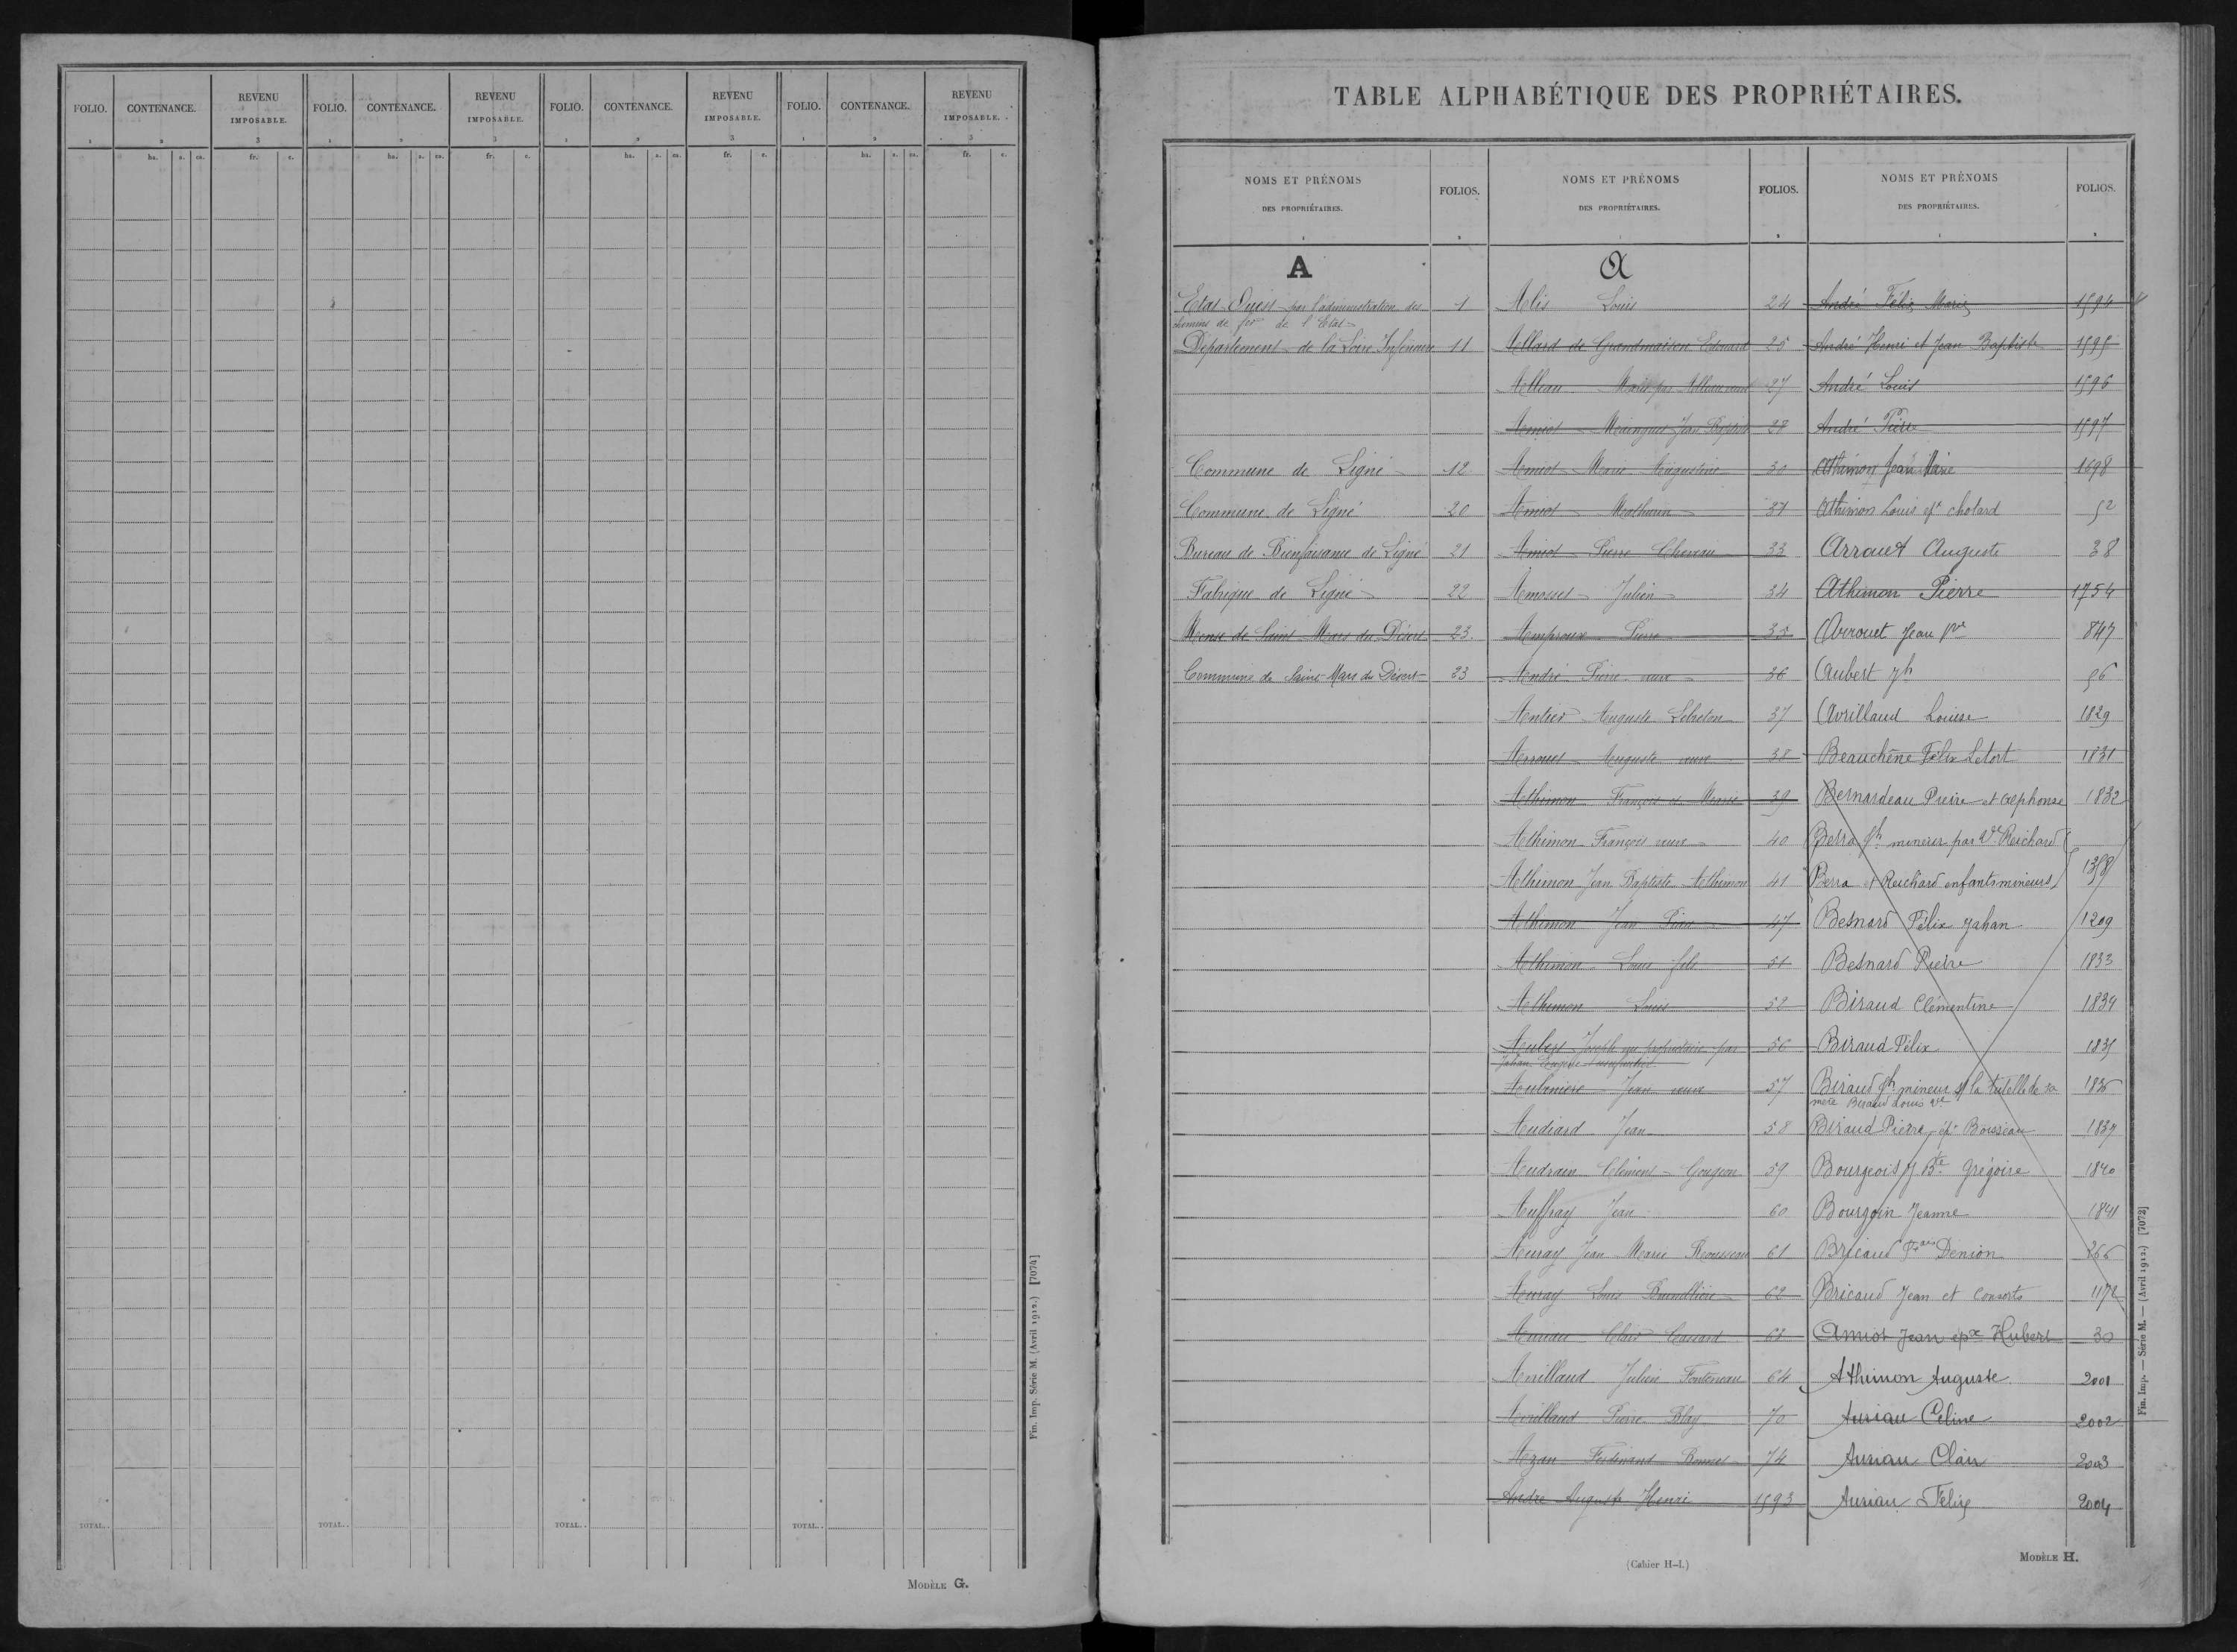 FOLIO. CONTENANCE. REVENU IMPOSABLE. FOLIO. CONTENANCE. REVENU IMPOSABLE. FOLIO. CONTENANCE. REVENU IMPOSABLE. FOLIO. CONTENANCE. REVENU IMPOSABLE.
1 2 3 1 2 3 1 2 3 1 2 3
ha. a. ca. fr. c. ha. a. ca. fr. c. ha. a. ca. fr. c. ha. a. ca. fr. c.
TOTAL.. TOTAL.. TOTAL.. TOTAL..
Fin. Imp. Série M. (Avril 1912.) [7074]
MODÈLE G.
TABLE ALPHABÉTIQUE DES PROPRIÉTAIRES.
NOMS ET PRÉNOMS DES PROPRIÉTAIRES. FOLIOS.
A
Etat Ouest par l'administration des 1
chemins de fer de l'Etat
Département de la Loire Inférieure 11
Commune de Ligné 12
Commune de Ligné 20
Bureau de Bienfaisance de Ligné 21
Fabrique de Ligné 22
Mense de Saint Mars du Désert 23
Commune de Saint-Mars du Désert 23
NOMS ET PRÉNOMS DES PROPRIÉTAIRES. FOLIOS.
A
Alis Louis 24
Allard de Grandmaison Edouard 25
Alleau 27
Amiot Mainguet Jean Baptiste 28
Amiot Marie Augustine 30
Amiot Mathurin 31
Amiot Pierre Cheveau 33
Amossé Julien 34
Amproux Pierre 35
André Pierre veuve 36
Antier Auguste Lebreton 37
Arrouet Auguste veuve 38
Athimon François et Marie 39
Athimon François veuve 40
Athimon Jean Baptiste Athimon 41
Athimon Jean Pierre 47
Athimon Louis fils 51
Athimon Louis 52
Aubert Joseph nu propriétaire par 56
Jahan Eugénie usufruitier
Jean veuve 57
Audiard Jean 58
Audrain Clément Gougeon 59
Auffray Jean 60
Auray Jean Marie Rousseau 61
Auray Louis 62
Auriau Clair 63
Avrillaud Julien Fonteneau 64
Avrillaud Pierre Blay 70
Azan Ferdinand Bonnet 74
André Auguste Henri 1593
NOMS ET PRÉNOMS DES PROPRIÉTAIRES. FOLIOS.
André Félix Marie 1594
André Henri et Jean Baptiste 1595
André Louis 1596
André Pierre 1597
Athimon Jean Marie 1698
Athimon Louis épx cholard 52
Arrouet Auguste 38
Athimon Pierre 1754
Averouet Jean Pre 847
Aubert Jh 56
Avrillaud Louise 1829
Beauchêne Félix Letort 1831
Bernardeau Pierre et Alphonse 1832
Berra Jh mineur par Ve Reichard
Berra et Reichard enfants mineurs 1388
Besnard Félix Jahan 1209
Besnard Pierre 1833
Biraud Clémentine 1834
Biraud Félix 1835
Biraud Jh mineur s/ la tutelle de sa 1836
mère Biraud Louis Vve
Biraud Pierre épx Boisseau 1837
Bourgeois J Bte Grégoire 1840
Bourgoin Jeanne 1841
Bricaud Fçois Denion 266
Bricaud Jean et consorts 1172
Amiot Jean epx Hubert 30
Athimon Auguste 2001
Auriau Céline 2002
Auriau Clair 2003
Auriau Félix 2004
(Cahier H-I.)
MODÈLE H.
Fin. Imp. — Série M. — (Avril 1912.) [7072]